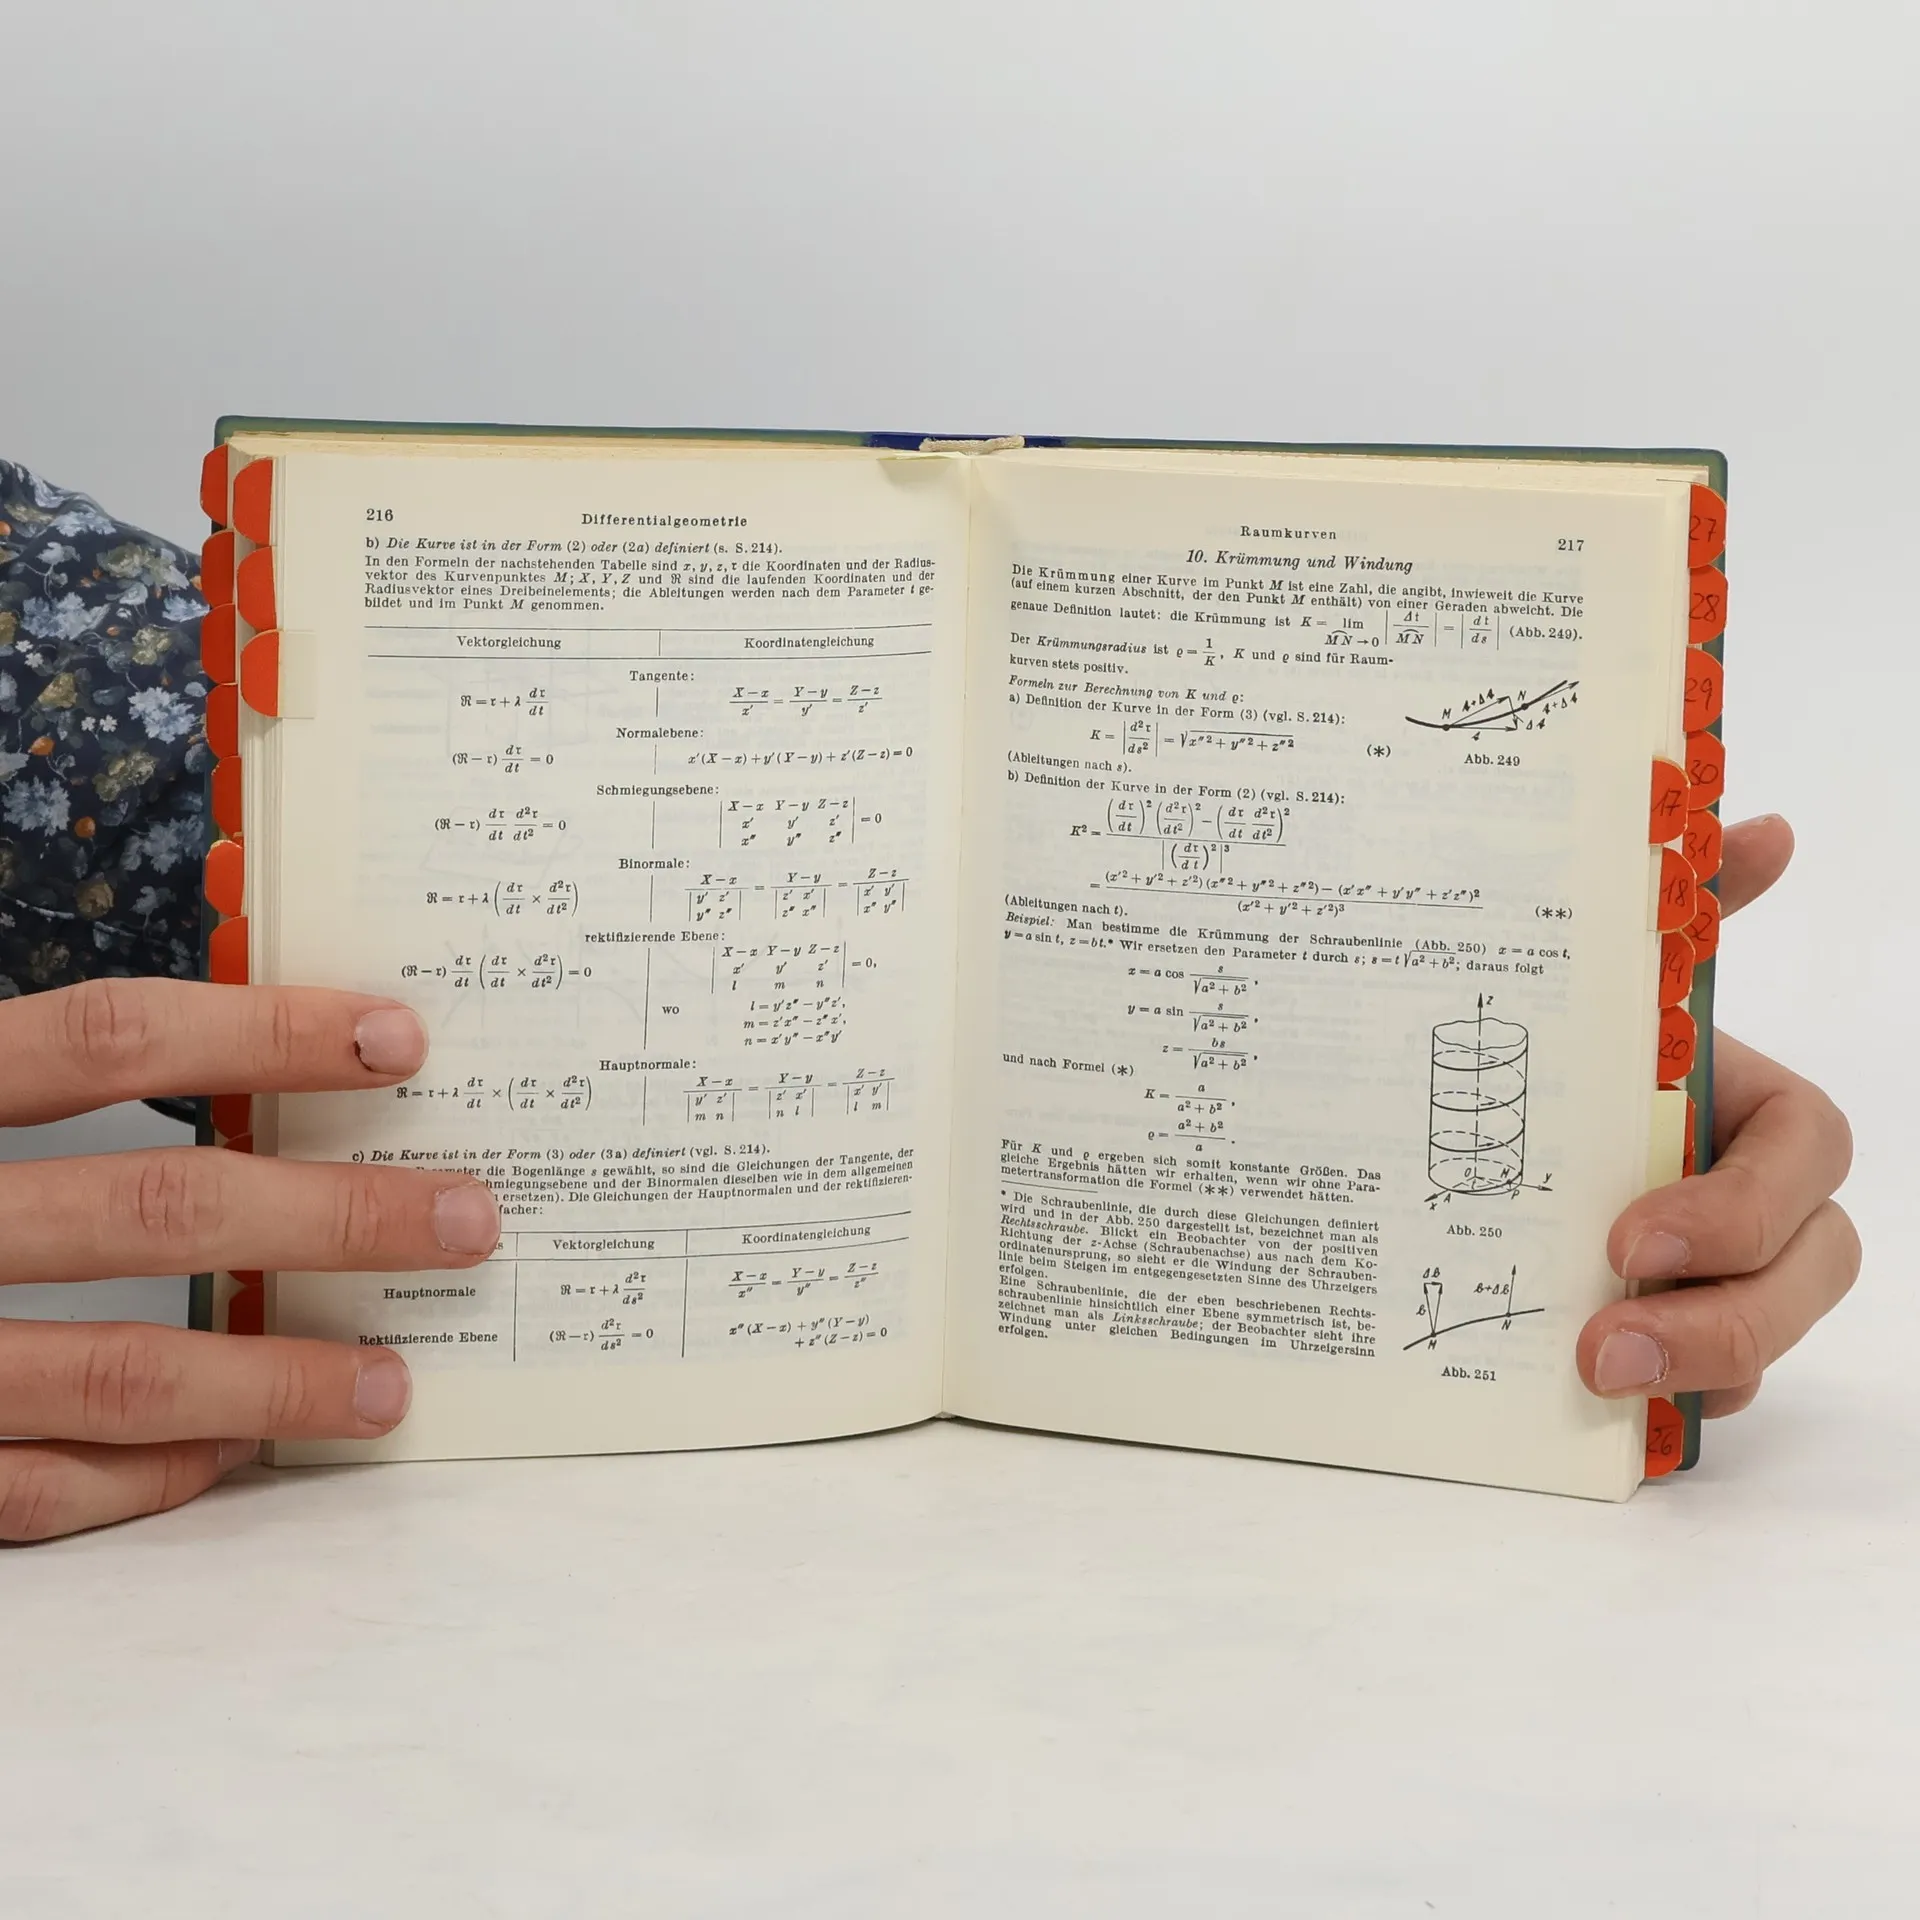 216
Differentialgeometrie
b) Die Kurve ist in der Form (2) oder (2a) definiert (s. S. 214).
In den Formeln der nachstehenden Tabelle sind x, y, z, 𝔯 die Koordinaten und der Radius-
vektor des Kurvenpunktes M; X, Y, Z und ℜ sind die laufenden Koordinaten und der
Radiusvektor eines Dreibeinelements; die Ableitungen werden nach dem Parameter t ge-
bildet und im Punkt M genommen.
Vektorgleichung | Koordinatengleichung
Tangente:
ℜ = 𝔯 + λ d𝔯/dt | (X − x)/x′ = (Y − y)/y′ = (Z − z)/z′
Normalebene:
(ℜ − 𝔯) d𝔯/dt = 0 | x′(X − x) + y′(Y − y) + z′(Z − z) = 0
Schmiegungsebene:
(ℜ − 𝔯) d𝔯/dt d²𝔯/dt² = 0 | |X − x Y − y Z − z; x′ y′ z′; x″ y″ z″| = 0
Binormale:
ℜ = 𝔯 + λ (d𝔯/dt × d²𝔯/dt²) | (X − x)/|y′ z′; y″ z″| = (Y − y)/|z′ x′; z″ x″| = (Z − z)/|x′ y′; x″ y″|
rektifizierende Ebene:
(ℜ − 𝔯) d𝔯/dt (d𝔯/dt × d²𝔯/dt²) = 0 | |X − x Y − y Z − z; x′ y′ z′; l m n| = 0,
wo l = y′z″ − y″z′,
m = z′x″ − z″x′,
n = x′y″ − x″y′
Hauptnormale:
ℜ = 𝔯 + λ d𝔯/dt × (d𝔯/dt × d²𝔯/dt²) | (X − x)/|y′ z′; m n| = (Y − y)/|z′ x′; n l| = (Z − z)/|x′ y′; l m|
c) Die Kurve ist in der Form (3) oder (3a) definiert (vgl. S. 214).
die Bogenlänge s gewählt, so sind die Gleichungen der Tangente, der
und der Binormalen dieselben wie in dem allgemeinen
ersetzen). Die Gleichungen der Hauptnormalen und der rektifizieren-
Vektorgleichung | Koordinatengleichung
Hauptnormale | ℜ = 𝔯 + λ d²𝔯/ds² | (X − x)/x″ = (Y − y)/y″ = (Z − z)/z″
Rektifizierende Ebene | (ℜ − 𝔯) d²𝔯/ds² = 0 | x″(X − x) + y″(Y − y)
+ z″(Z − z) = 0
Raumkurven
217
10. Krümmung und Windung
Die Krümmung einer Kurve im Punkt M ist eine Zahl, die angibt, inwieweit die Kurve
(auf einem kurzen Abschnitt, der den Punkt M enthält) von einer Geraden abweicht. Die
genaue Definition lautet: die Krümmung ist K = lim MN→0 |Δt/MN| = |dt/ds| (Abb. 249).
Der Krümmungsradius ist ϱ = 1/K, K und ϱ sind für Raum-
kurven stets positiv.
Formeln zur Berechnung von K und ϱ:
a) Definition der Kurve in der Form (3) (vgl. S. 214):
K = |d²𝔯/ds²| = √(x″² + y″² + z″²) (*)
(Ableitungen nach s).
Abb. 249
b) Definition der Kurve in der Form (2) (vgl. S. 214):
K² = ((d𝔯/dt)² (d²𝔯/dt²)² − (d𝔯/dt d²𝔯/dt²)²)/|(d𝔯/dt)²|³
= ((x′² + y′² + z′²)(x″² + y″² + z″²) − (x′x″ + y′y″ + z′z″)²)/(x′² + y′² + z′²)³ (**)
(Ableitungen nach t).
Beispiel: Man bestimme die Krümmung der Schraubenlinie (Abb. 250) x = a cos t,
y = a sin t, z = bt.* Wir ersetzen den Parameter t durch s; s = t √(a² + b²); daraus folgt
x = a cos s/√(a² + b²),
y = a sin s/√(a² + b²),
z = bs/√(a² + b²),
und nach Formel (*)
K = a/(a² + b²),
ϱ = (a² + b²)/a.
Für K und ϱ ergeben sich somit konstante Größen. Das
gleiche Ergebnis hätten wir erhalten, wenn wir ohne Para-
metertransformation die Formel (**) verwendet hätten.
* Die Schraubenlinie, die durch diese Gleichungen definiert
wird und in der Abb. 250 dargestellt ist, bezeichnet man als
Rechtsschraube. Blickt ein Beobachter von der positiven
Richtung der z-Achse (Schraubenachse) aus nach dem Ko-
ordinatenursprung, so sieht er die Windung der Schrauben-
linie beim Steigen im entgegengesetzten Sinne des Uhrzeigers
erfolgen.
Eine Schraubenlinie, die der eben beschriebenen Rechts-
schraubenlinie hinsichtlich einer Ebene symmetrisch ist, be-
zeichnet man als Linksschraube; der Beobachter sieht ihre
Windung unter gleichen Bedingungen im Uhrzeigersinn
erfolgen.
Abb. 250
Abb. 251
27
28
29
30
17
31
18
19
20
26